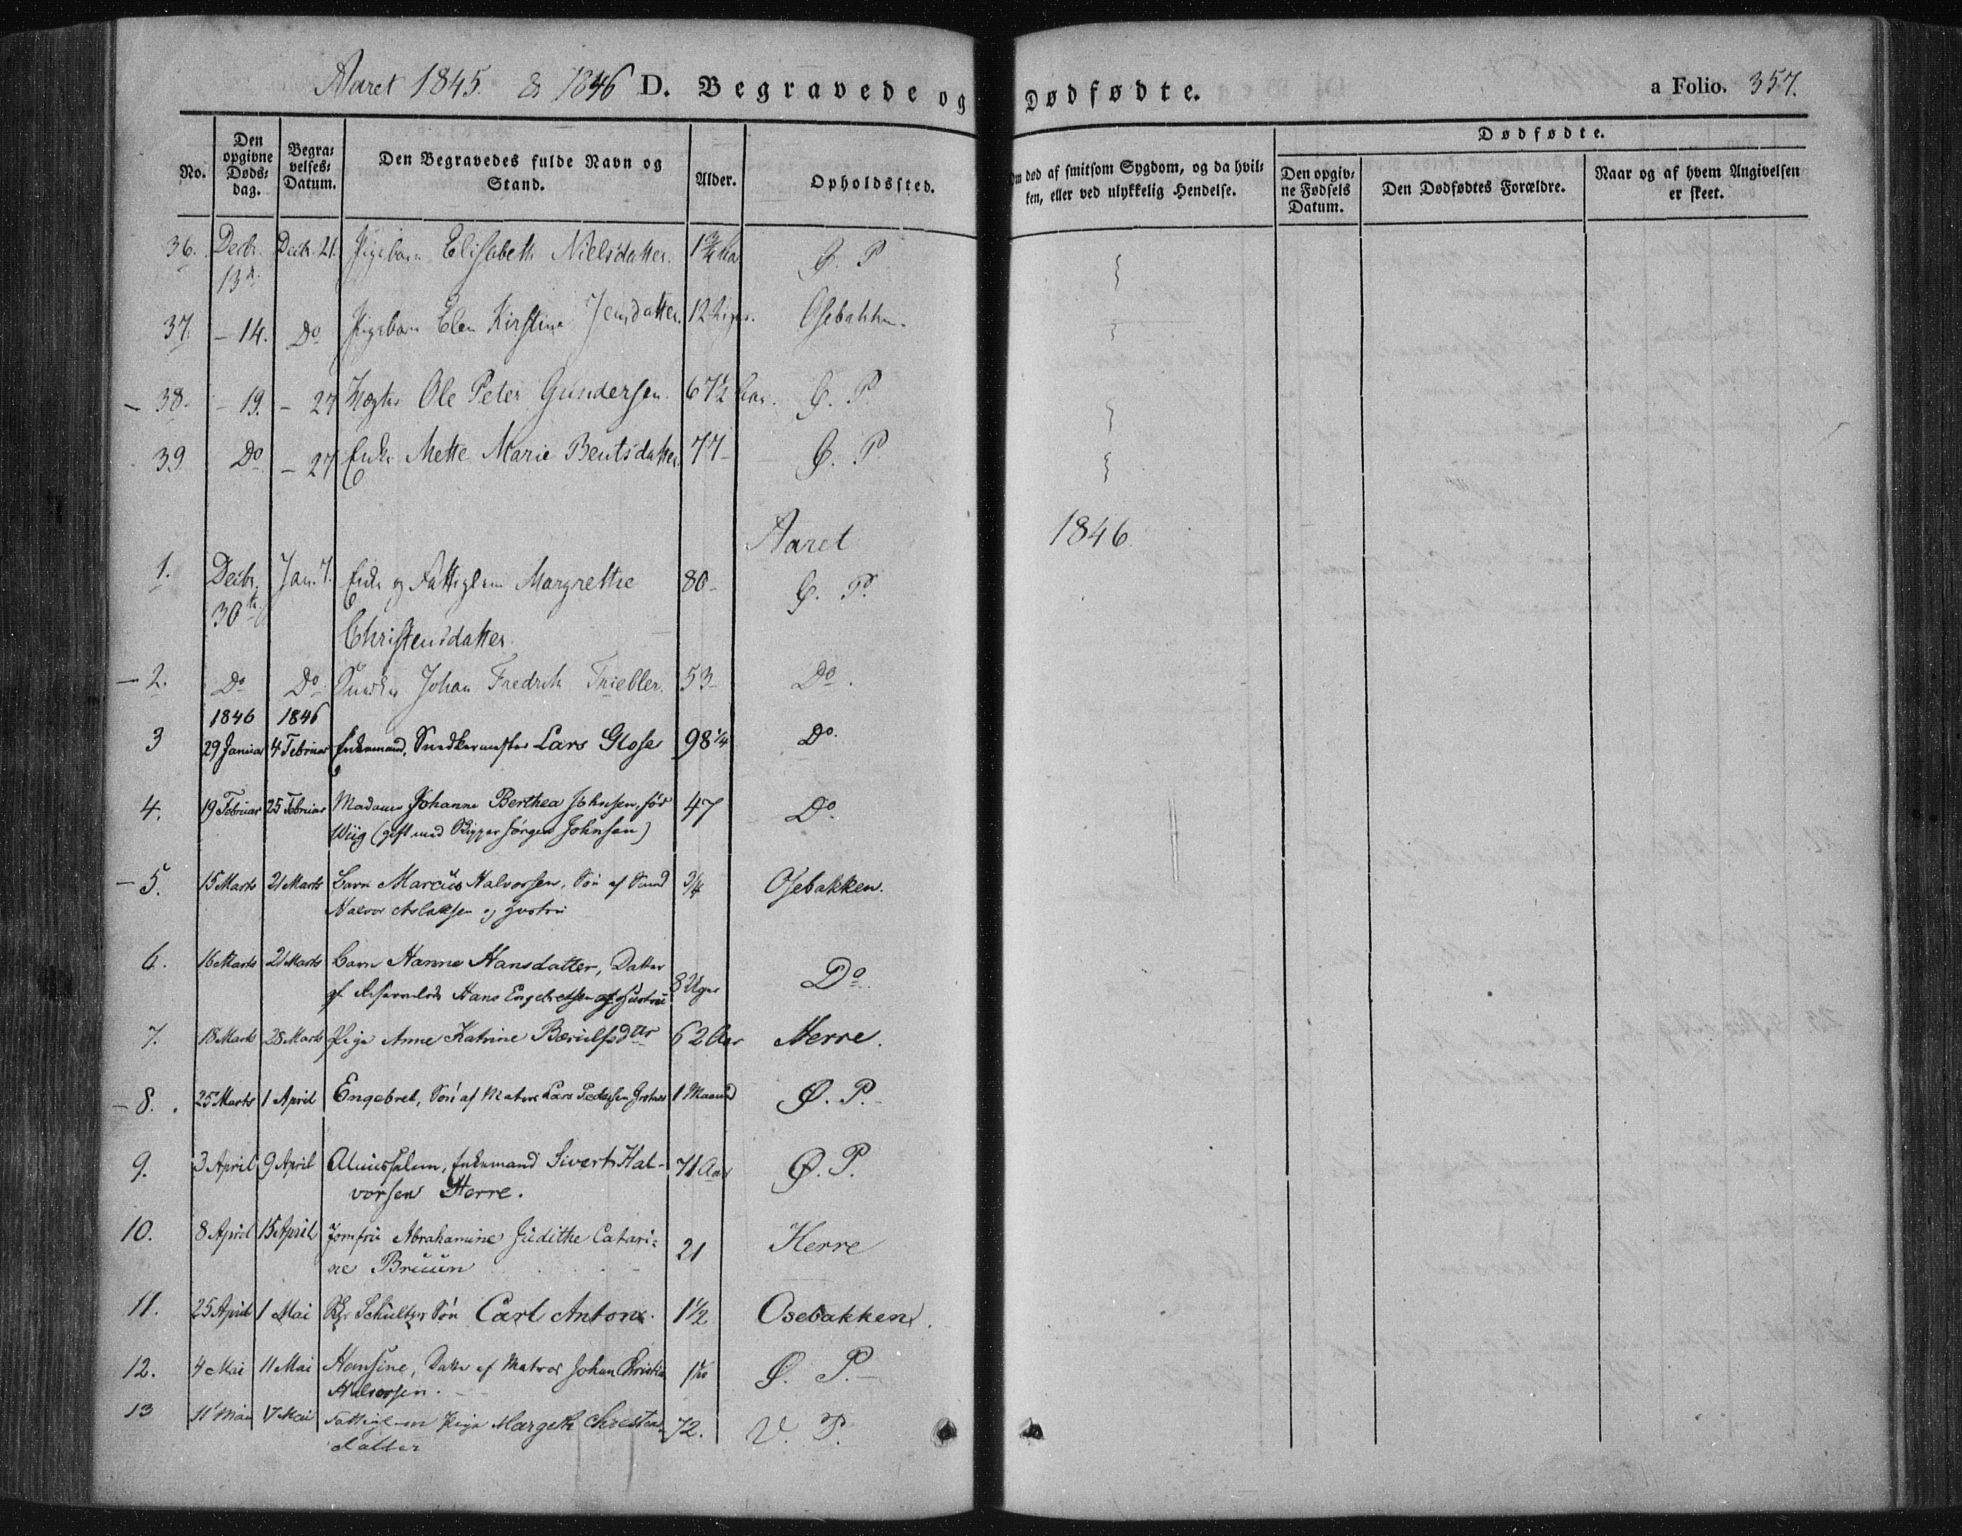 Aaret 1845. & 1846 D. Begravede og Dødfødte.
a Folio. 357.
No.
Den opgivne Døds-dag.
Begra-velses-Datum.
Den Begravedes fulde Navn og Stand.
Alder.
Opholdssted.
Om død af smitsom Sygdom, og da hvil-ken, eller ved ulykkelig Hendelse.
Dødfødte.
Den opgiv-ne Fødsels Datum.
Den Dødfødtes Forældre.
Naar og af hvem Angivelsen er skeet.
36. Decbr. Decbr. 21. Pigebarn Elisabeth Nielsdatter. Ø. P
13de
37. – 14. Do Pigebarn Elen Kirstine Jensdatter. 12 Uger. Osebakken.
38. – 19. – 27 Ole Peter Gundersen. 67½ Aar. Ø. P
39 Do – 27 Enke Mette Marie Bentsdatter 77 – Ø. P
Aaret 1846.
1. Decbr. Jan. 7. Enke og Fattiglem Margrethe 80 – Ø. P.
30te Christensdatter.
2. Do Do Johan Fredrik Triebler. 53 – Do.
1846 1846
3 29 Januar 4 Februar Enkemand, Snedkermester Lars Gloser 98 1/4 Do.
4. 19 Februar 25 Februar Madame Johanne Berthea Johnsen, før 47 Do.
Wiig (gift med Skipper Jørgen Johnsen)
5. 15 Marts 21 Marts Barn Marcus Halvorsen, Søn af 3/4 Osebakken.
Halvor Aslaksen og Hustru
6. 16 Marts 21 Marts Barn Hanne Hansdatter, Datter 8 Uger Do.
af Hans Engebretsen og Hustru
7. 18 Marts 28 Marts Pige Anne Katrine 62 Aar Herre.
8. 25 Marts 1 April Engebret, Søn af Matros Lars Pedersen 1 Maaned Ø. P.
9. 3 April 9 April Enkemand Sivert Hal- 71 Aar Ø. P.
vorsen Herre.
10. 8 April 15 April Jomfru Abrahamine Judithe Catari- 21 Herre
ne Bruun
11. 25 April 1 Mai Schultz Søn Carl Anton. 1½ Osebakken.
12. 4 Mai 11 Mai Hansine, Datter af Matros Johan Christian Ø. P. –
Halvorsen.
13 11 Mai 17 Mai Fattiglem Pige Margeth Christens- 72. V. P.
datter